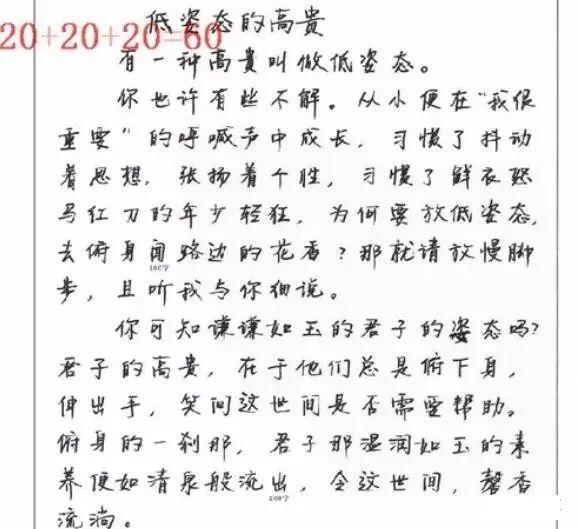 低姿态的高贵
20+20+20=60
有一种高贵叫做低姿态。
你也许有些不解。从小便在“我很
重要”的呼喊声中成长，习惯了抖动
着思想，张扬着个性，习惯了鲜衣怒
马红刀的年少轻狂，为何要放低姿态，
去俯身闻路边的花香？那就请放慢脚
100字
步，且听我与你细说。
你可知谦谦如玉的君子的姿态吗？
君子的高贵，在于他们总是俯下身，
伸出手，笑问这世间是否需要帮助。
俯身的一刹那，君子那湿润如玉的素
养便如清泉般流出，令这世间，馨香
200字
流淌。